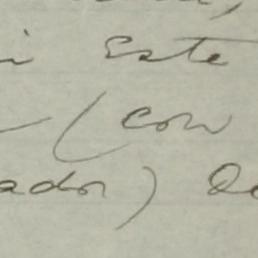 i Este
(con
ador) De